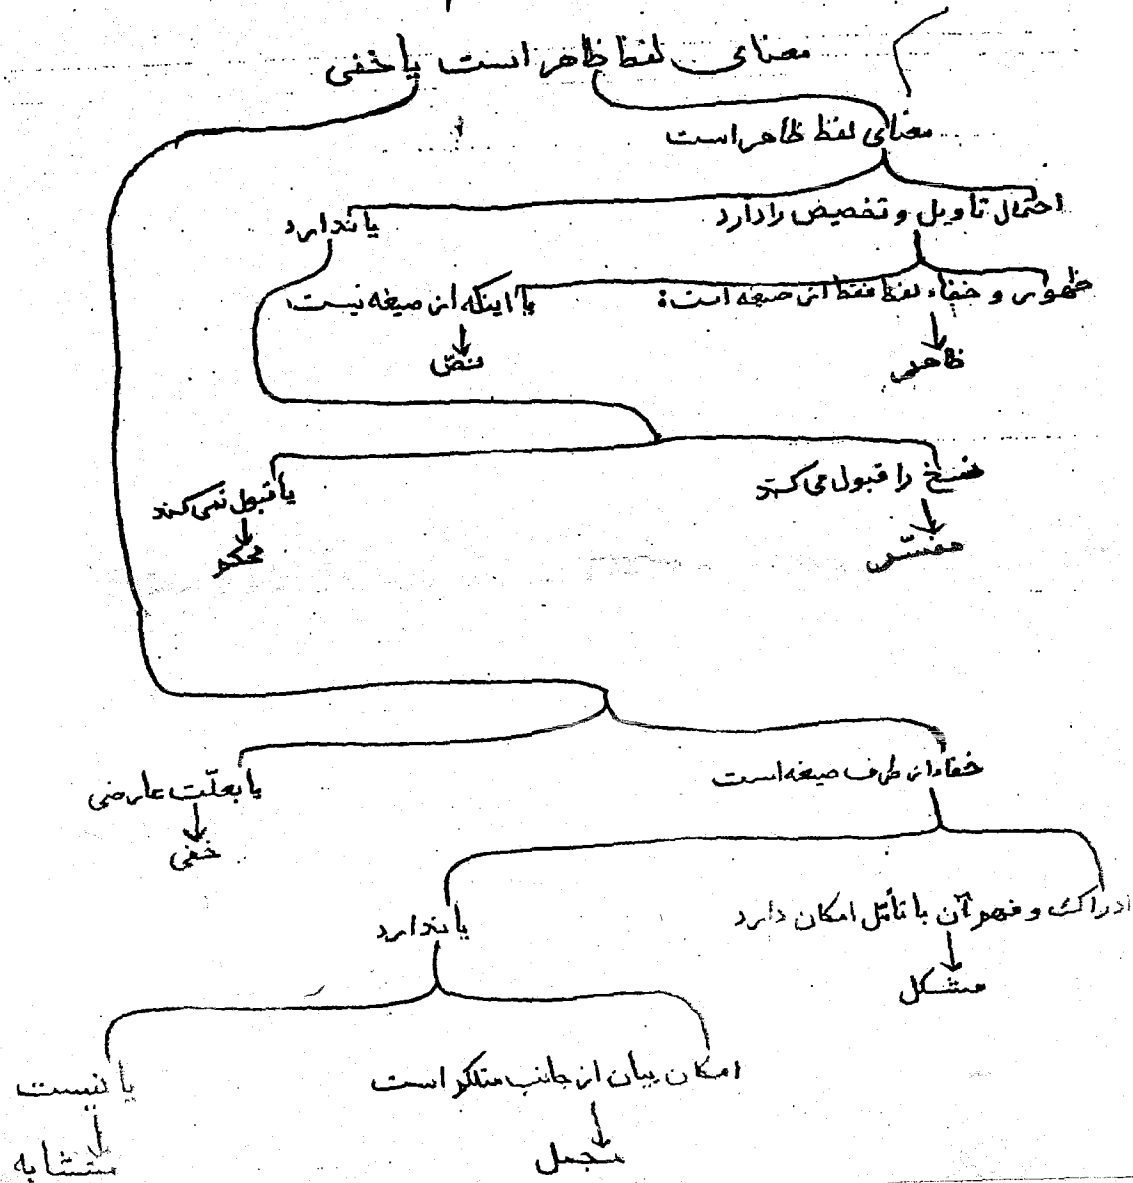 معنای لفظ ظاهر است یا خفی
معنای لفظ ظاهر است
احتمال تأویل و تخصیص را دارد
یا ندارد
ظهور و خفاء لفظ فقط از صیغه است
یا اینکه از صیغه نیست
ظاهر
نصّ
نسخ را قبول می کند
یا قبول نمی کند
مفسّر
محکم
خفاء از طرف صیغه است
یا بعلّت عارضی
خفی
ادراک و فهم آن با تأمّل امکان دارد
یا ندارد
مشکل
امکان بیان از جانب متکلم است
یا نیست
مجمل
متشابه